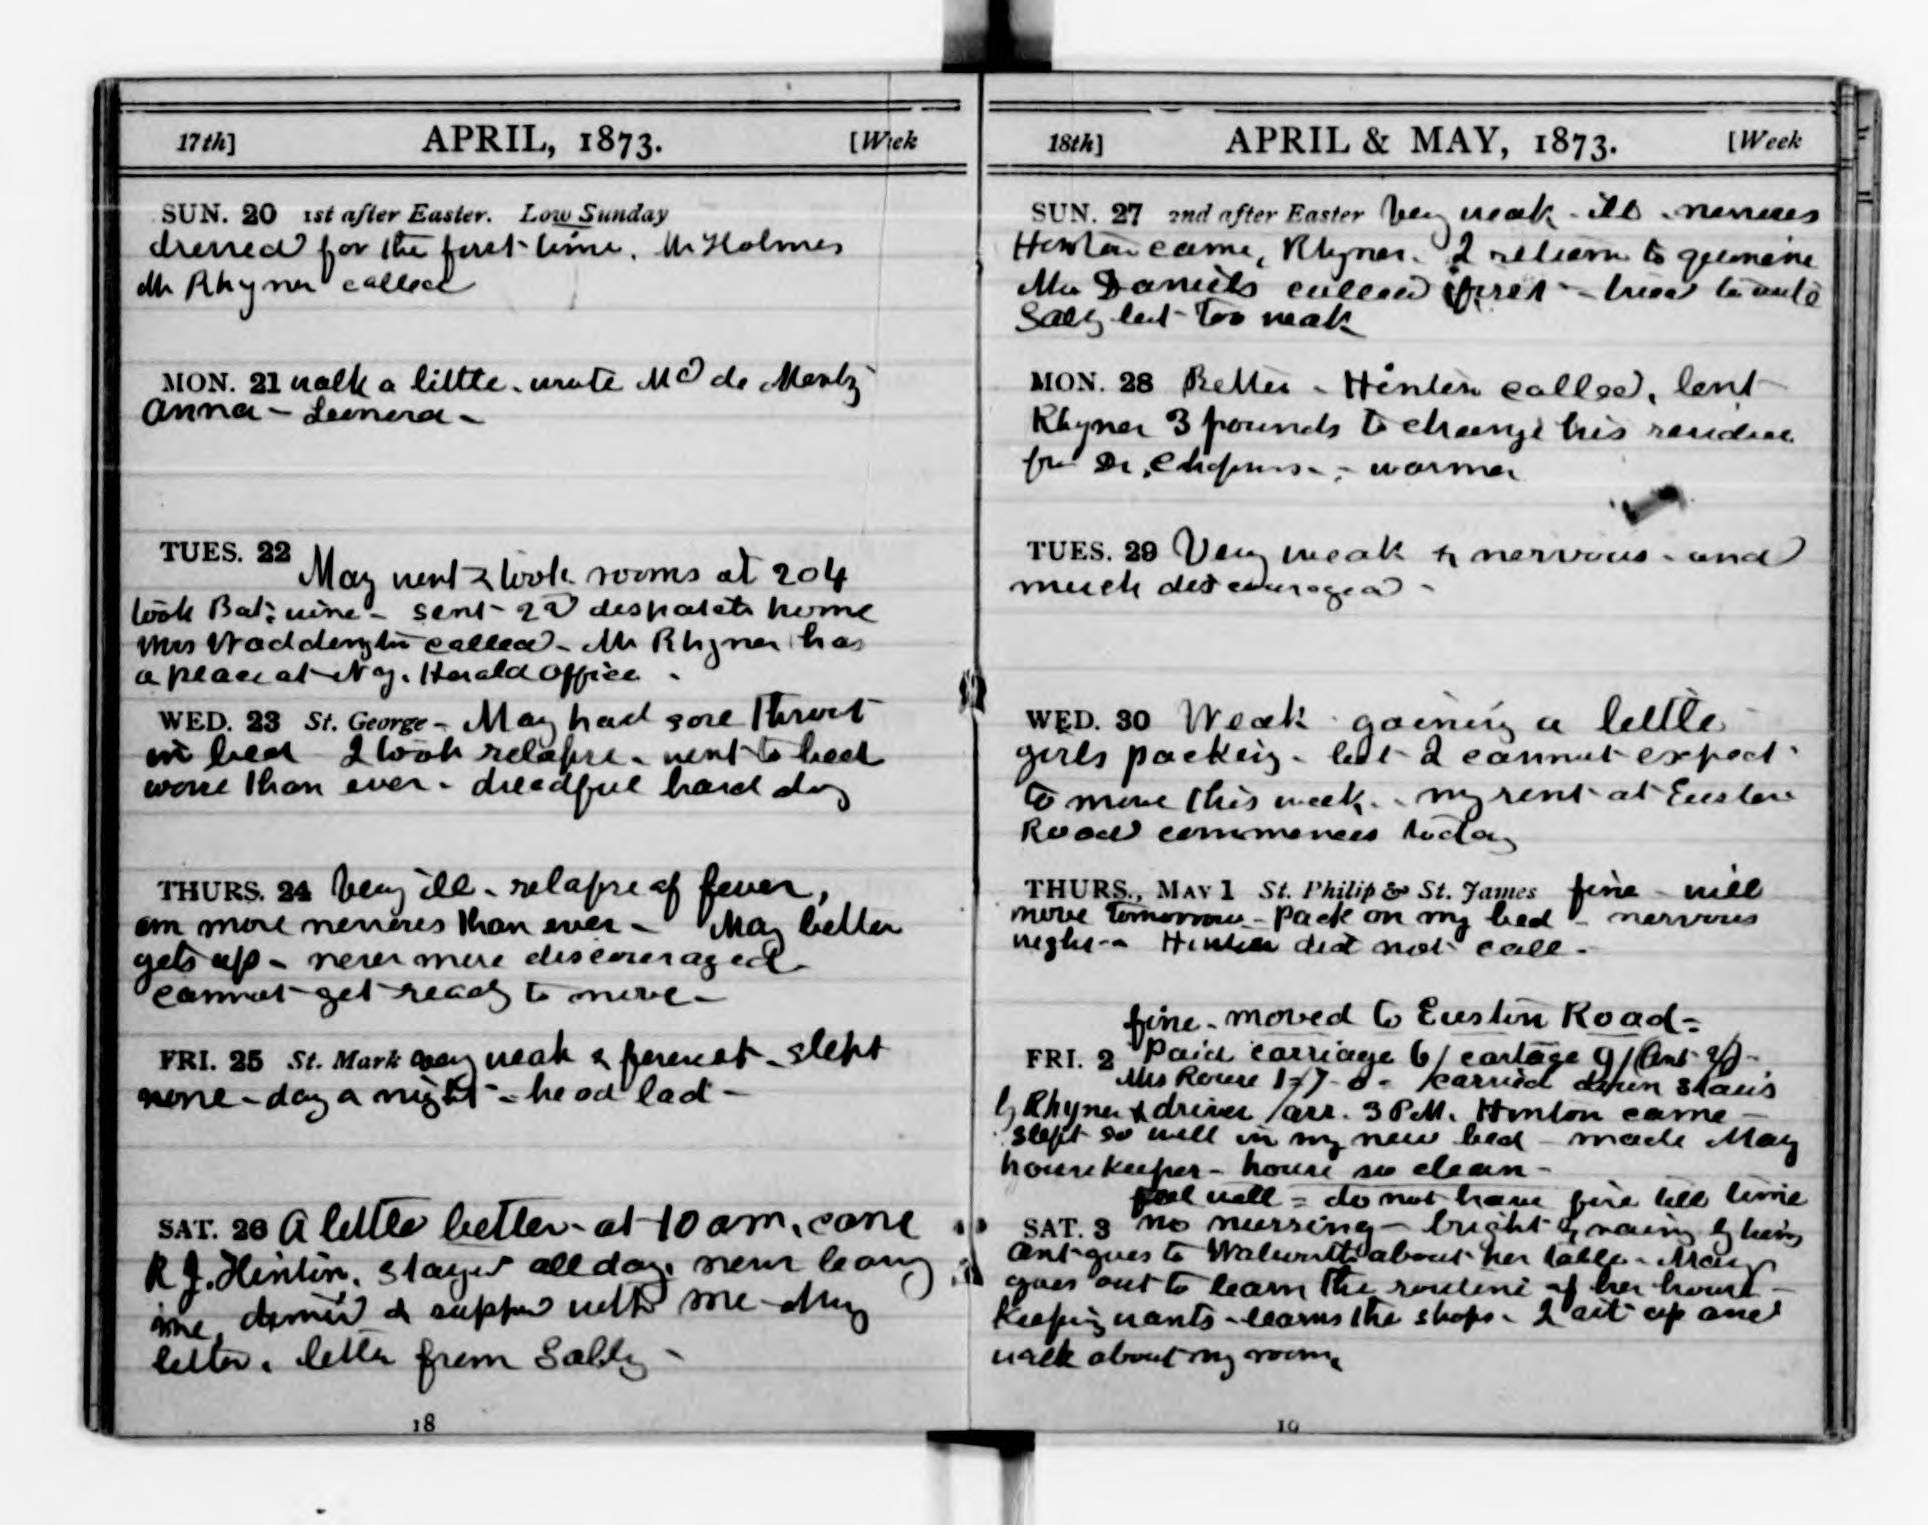 17th] APRIL, 1873. [Week
SUN. 20 1st after Easter. Low Sunday
dressed for the first time. Mr Holmes
Mr Rhyner called
MON. 21 walk a little. wrote Md de
Anna - Leonora -
TUES. 22
May went & took rooms at 204
took Bat: wine - sent 22 despatch home
Mrs Waddington called - Mr Rhyner has
a place at N y. Herald office .
WED. 23 St. George - May had sore throat
in bed I took relapse - went to bed
worse than ever - dreadful hard day
THURS. 24 Very ill - relapse of fever,
am more nervous than ever - May better
gets up - never more discouraged -
cannot get ready to move -
FRI. 25 St. Mark very weak & feverish - slept
none - day a night - head bad -
SAT. 26 A little better - at 10 am. came
R J. Hinton. stayed all day. never leaving
me dinner & supper with me - 
letter. letter from Sally -
18
18th] APRIL & MAY, 1873. [Week
SUN. 27 2nd after Easter Very weak - ill - nervous
Hinton came, Rhyner. I return to quinine
Mrs Daniels called first - tried to write
Sally but too weak
MON. 28 Better - Hinton called. lent
Rhyner 3 pounds to change his residence
for Dr. - warmer
TUES. 29 Very weak & nervous - and
much discouraged -
WED. 30 Weak gaining a little
girls packing - but I cannot expect
to move this week - my rent at Euston
Road commences today
THURS., MAY 1 St. Philip & St. James fine - will
move tomorrow - Pack on my bed - nervous
night - Hinton did not call -
fine - moved to Euston Road -
FRI. 2 Paid carriage 6/ cartage 9/ (Ant 2/) -
Mrs Rouse 1-7-0 - /carried down stairs
by Rhyner & driver /arr. 3 P.M. Hinton came -
slept so well in my new bed - made May
housekeeper - house so clean -
feel well - do not have fire till time
SAT. 3 no nursing - bright &
Ant goes to Walworth about her table - May
goes out to learn the routine of her house -
keeping wants - learns the shops - I sit up and
walk about my room.
19